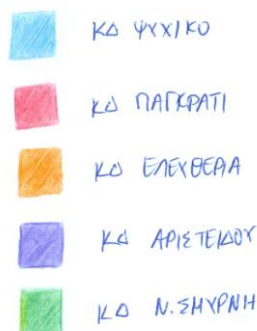 ΚΔ ΨΥΧΙΚΟ
ΚΔ ΠΑΓΚΡΑΤΙ
ΚΔ ΕΛΕΥΘΕΡΙΑ
ΚΔ ΑΡΙΣΤΕΙΔΟΥ
ΚΔ Ν. ΣΜΥΡΝΗ